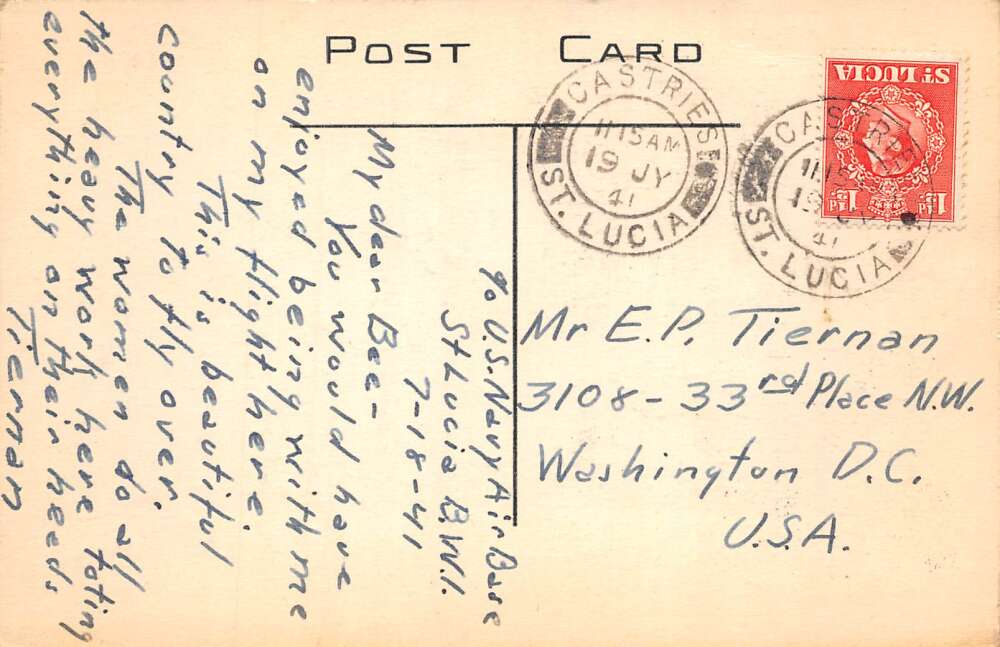 POST CARD
ST LUCIA
1½D 1½D
CASTRIES
11 15 AM
19 JY
41
ST. LUCIA
CASTRIES
19
41
ST. LUCIA
% U.S. Navy Air Base
St Lucia B.W.I.
7-18-41
My dear Bee-
You would have
enjoyed being with me
on my flight here.
This is beautiful
country to fly over.
The women do all
the heavy work here toting
everything on their heads
Tiernan
Mr E.P. Tiernan
3108-33rd Place N.W.
Washington D.C.
U.S.A.